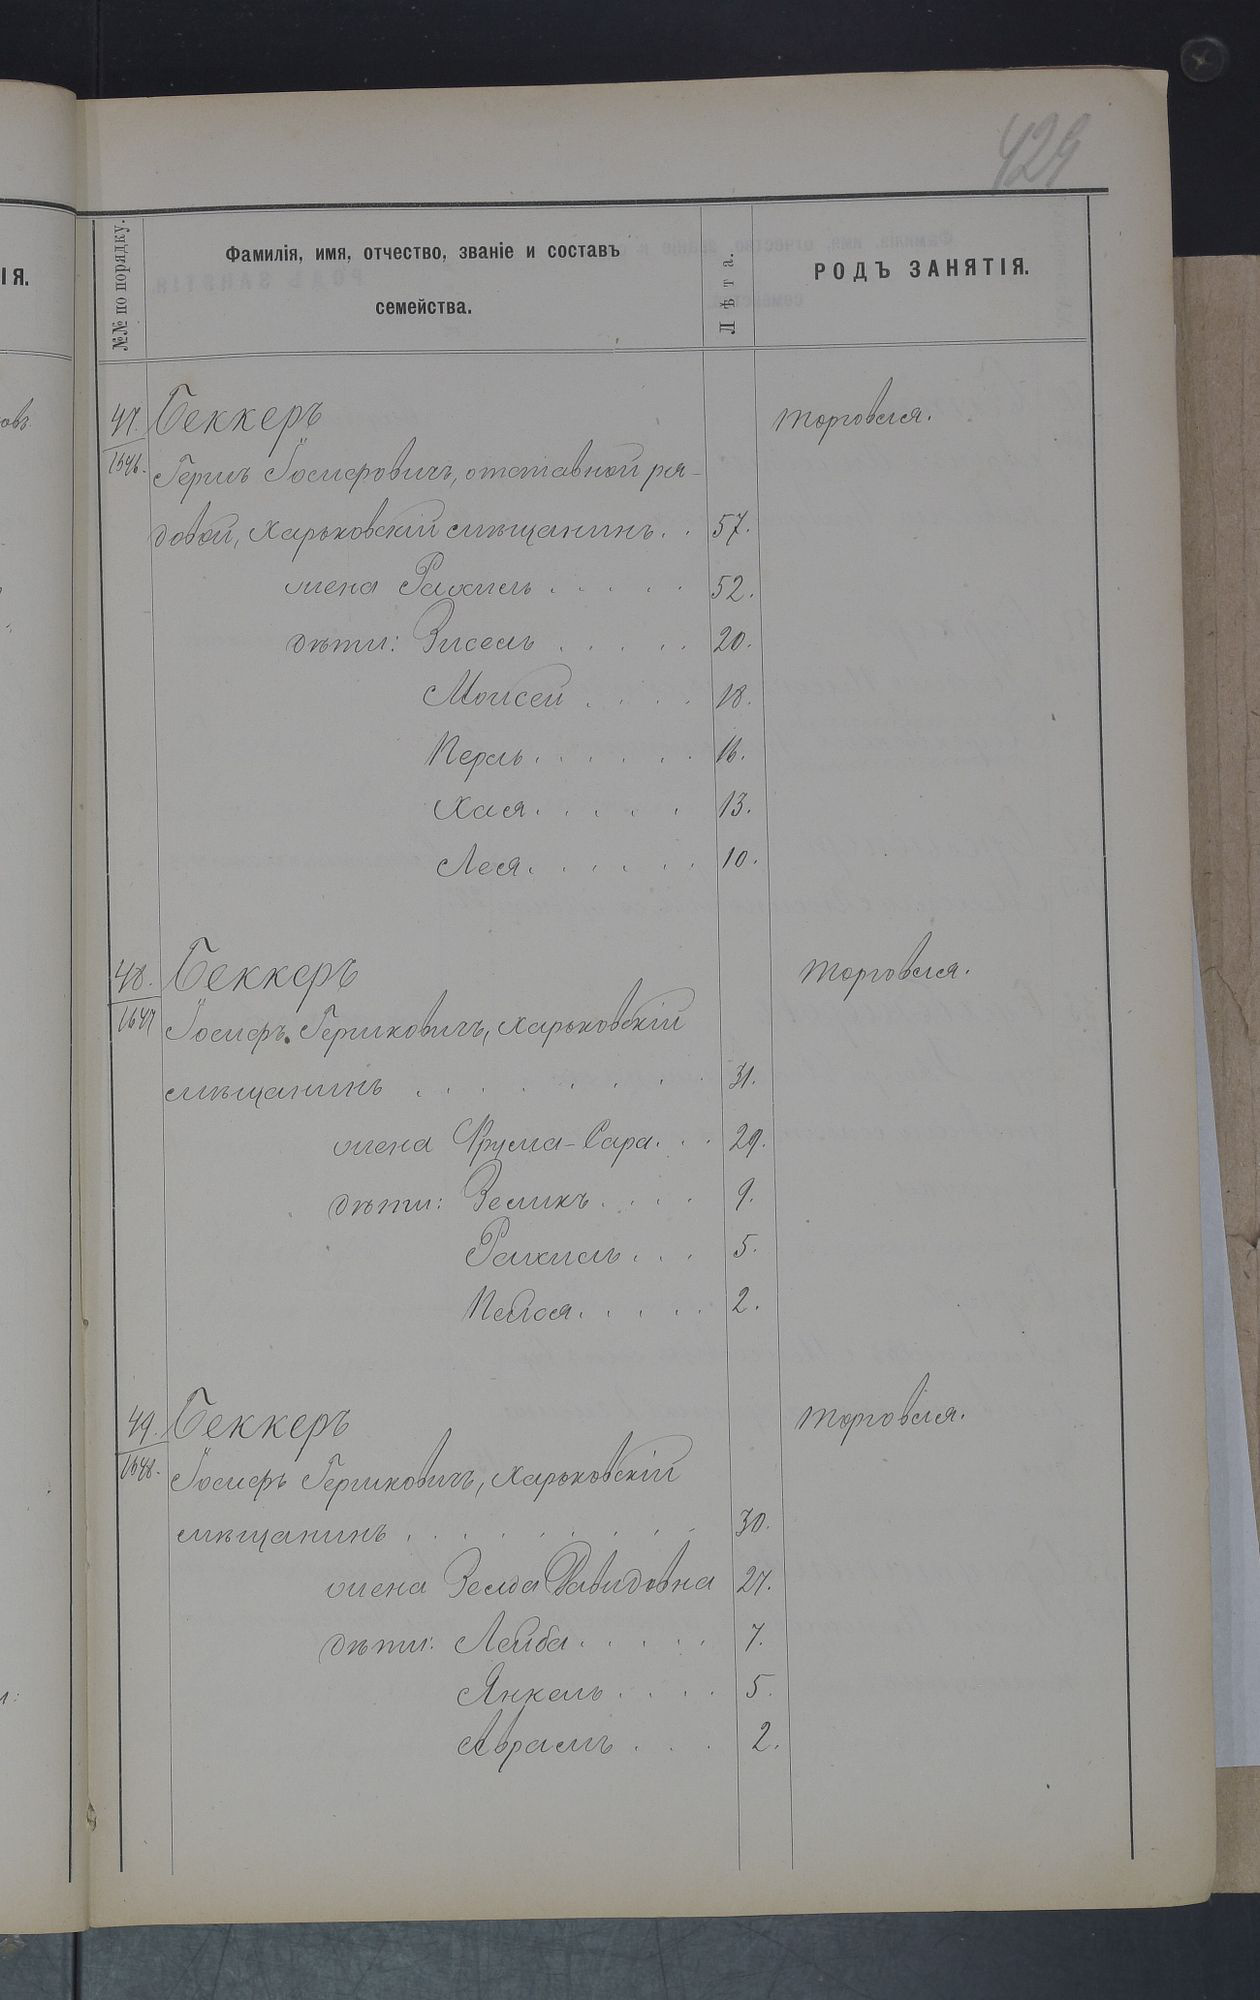 429
№№ по порядку.
Фамилія, имя, отчество, званіе и составъ
семейства.
Лѣта.
РОДЪ ЗАНЯТІЯ.
ІЯ.
47. Беккеръ торговля.
1646. Гершъ Іосифовичъ, отставной ря-
довой, Харьковскій мѣщанинъ. . 57.
жена Рахиль . . . . . 52.
дѣти: Зисель . . . . . 20.
Моисей . . . . 18.
Перль . . . . . . 16.
Хася . . . . . 13.
Леся . . . . . . 10.
48. Беккеръ торговля.
1647 Іосифъ Гершковичъ, Харьковскій
мѣщанинъ . . . . . . . . 31.
жена Фрума-Сара. . . 29.
дѣти: Зеликъ . . . . 9.
Рахиль . . . 5.
Пейся . . . . . 2.
49. Беккеръ торговля.
1648. Іосифъ Гершковичъ, Харьковскій
мѣщанинъ . . . . . . . . 30.
жена Зелда Давидовна 27.
дѣти: Лейба . . . . . 7.
Янкель . . . . 5.
Аврамъ . . . 2.